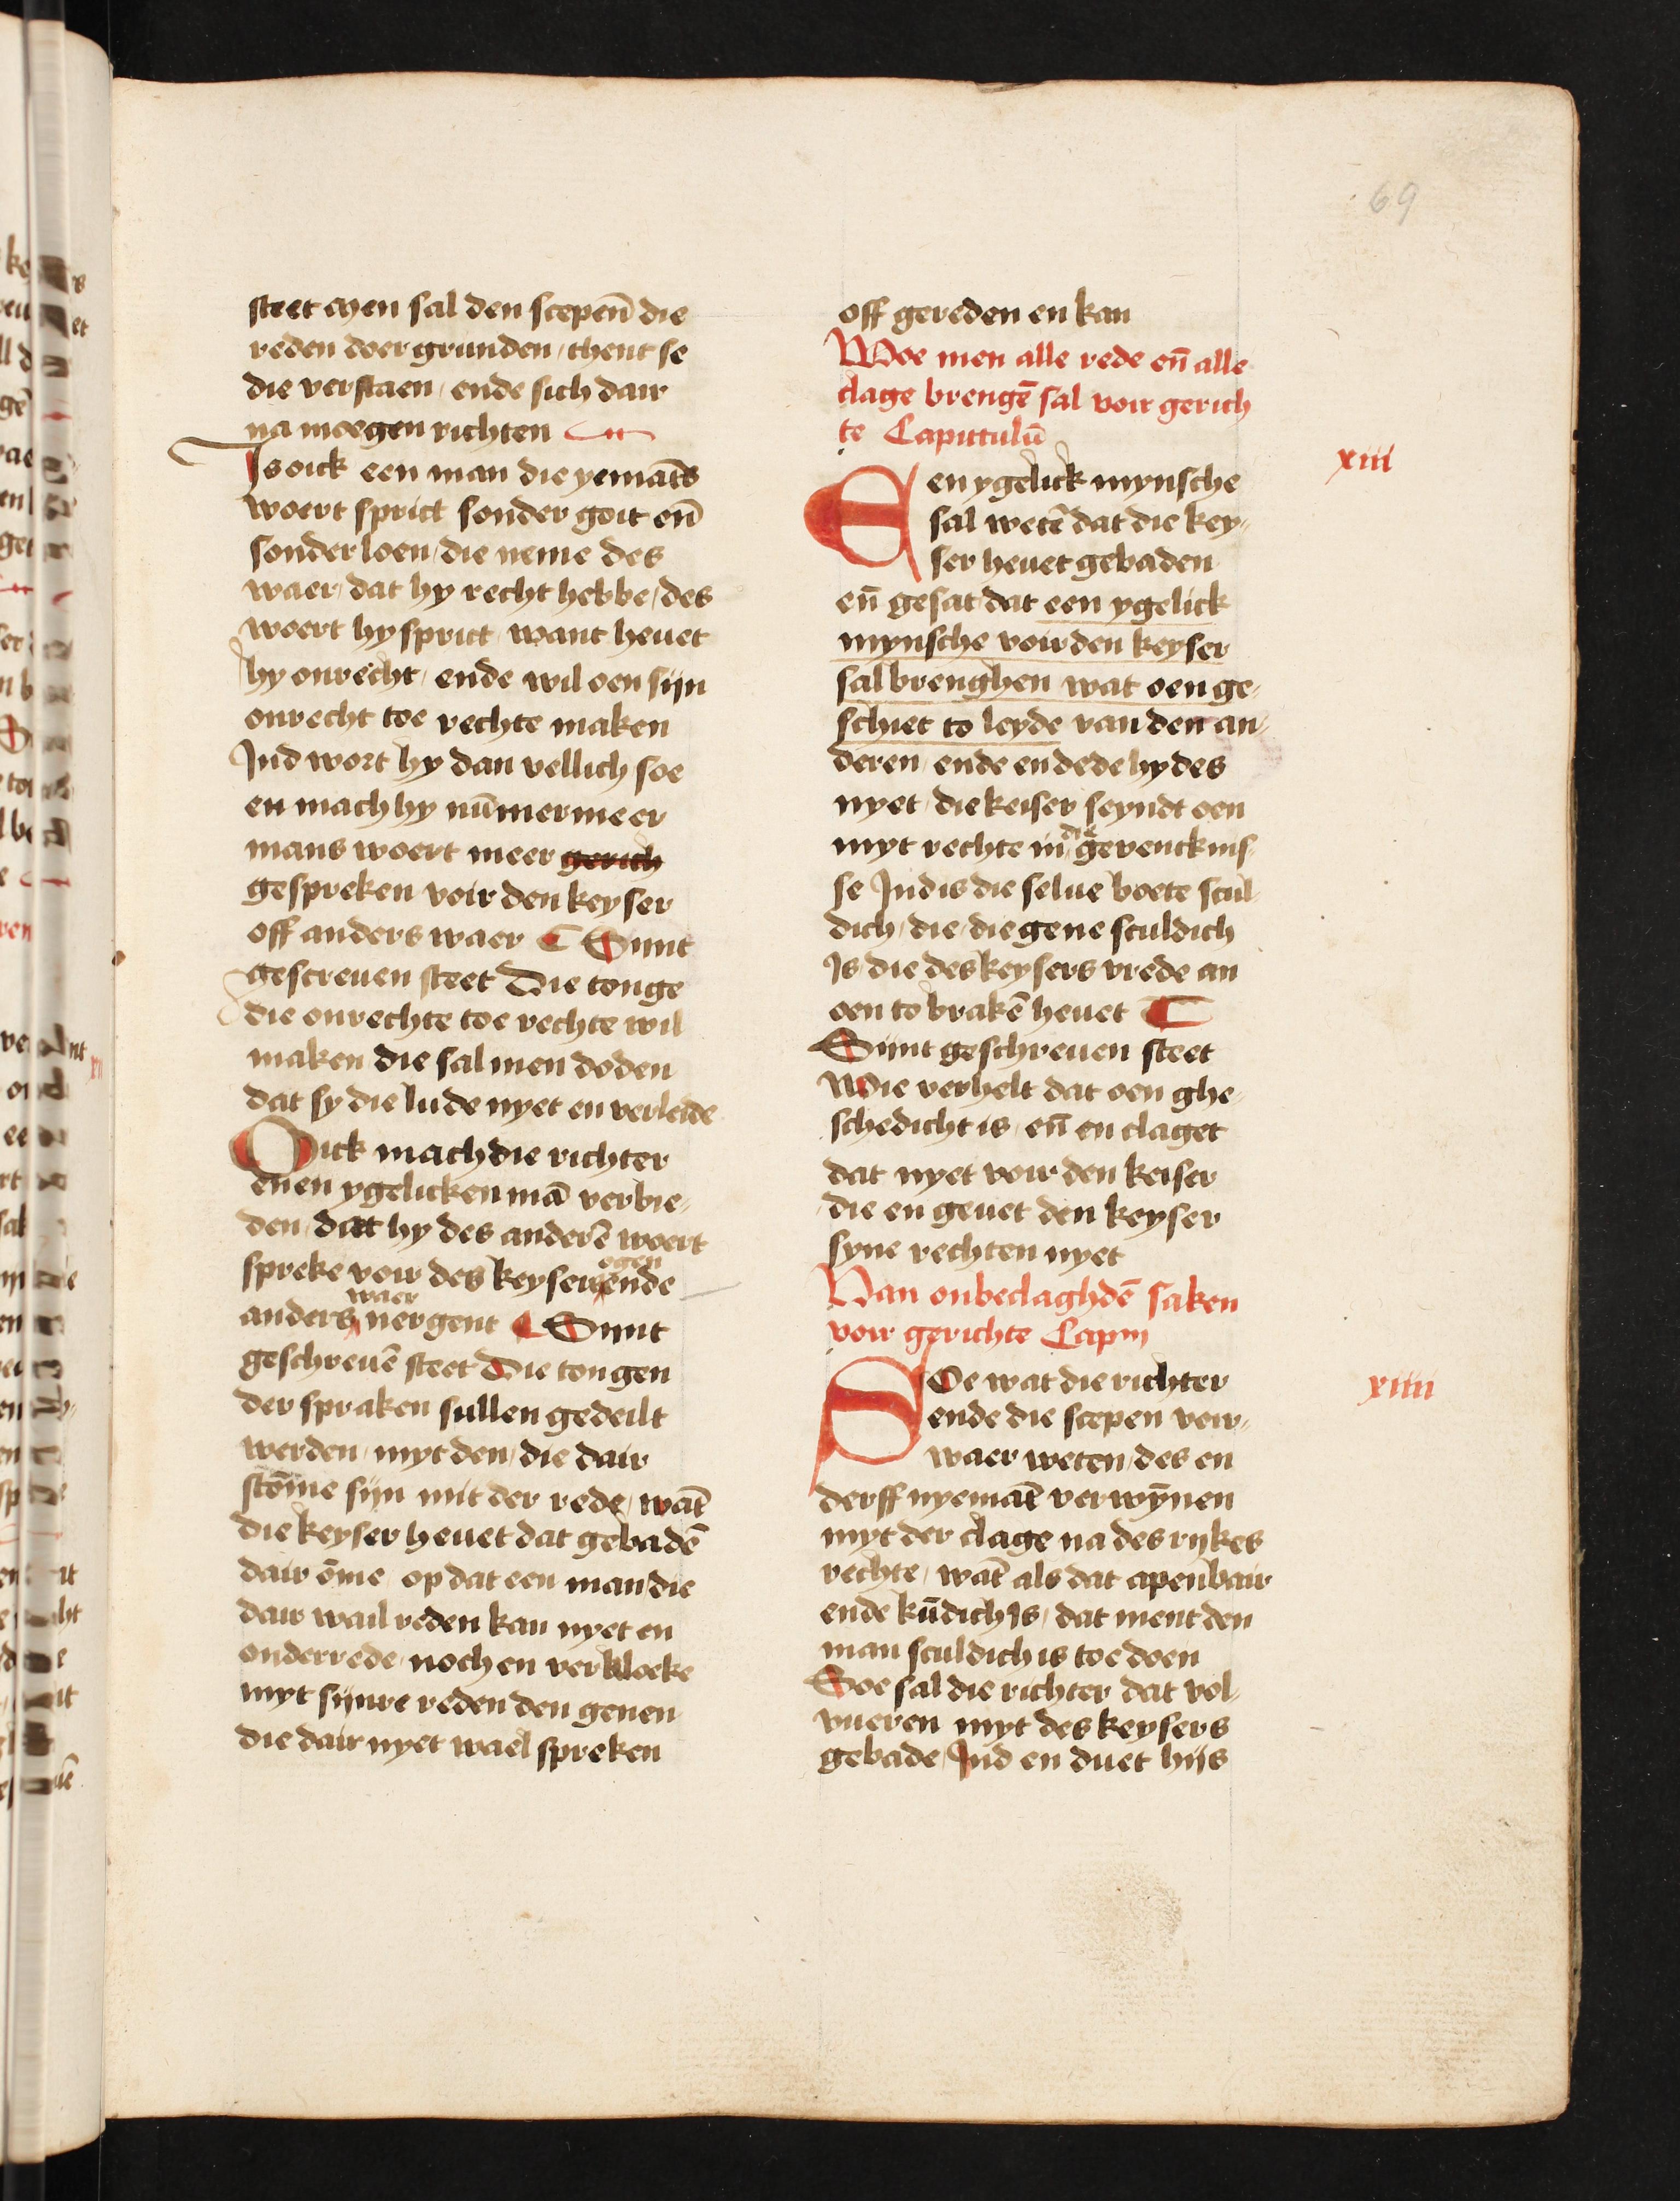 69
steet Men sal den scepen̄ die
reden doergrunden / thent se
die verstaen / ende sich dair
na moegen richten
Is oick een man die yemātˢ
woert sprict sonder goit en̄
sonder loen / die neme des
waer / dat hy recht hebbe / des
woert hy sprict / want heuet
hy onrecht / ende wil oen sijn
onrecht toe rechte maken
Ind wort hy dan vellich soe
en mach hy nūmermeer
mans woert meer gerich
gespreken voir den keyser
off anders waer ¶ Sunt
gescreuen steet Die tonge
die onrechte toe rechte wil
maken die sal men doden
dat sy die lude nyet en verleide
Oick mach die richter
enen ygelicken mā verbie-
den / dat hy des anderē woert
spreke voir des keysers ogen ende
anders waer nergent ¶ Sunt
geschreuē steet Die tongen
der spraken sullen gedeilt
werden / myt den / die dair
stōme sijn mit der rede / wāt
die keyser heuet dat gebadē
dair ōme / op dat een man die
dair wail reden kan nyet en
onderrede / noch en verkloeke
myt sijnre reden den genen
die dair nyet wael spreken
off gereden en kan
Woe men alle rede en̄ alle
clage brengē sal voir gerich
te Capittulū
xiii
Een ygelick mynsche
sal wetē dat die key-
ser heuet gebaden
en̄ gesat / dat een ygelick
mynsche voir den keyser
sal brenghen wat oen ge-
schiet to leyde van den an-
deren / ende en dede hy des
nyet / die keiser seyndt oen
myt rechte in die gevencknis-
se Ind is die selue boete scul-
dich / die / die gene sculdich
Is die des keysers vrede an
oen to brakē heuet ¶
Sunt geschreuen steet
Wie verhelt dat oen ghe-
schedicht is / en̄ en claget
dat nyet voir den keiser
die en geuet den keyser
syne rechten nyet
Van onbeclaghdē saken
voir gerichte Capm
xiiii
Soe wat die richter
ende die scepen voir-
waer weten / des en
derff nyemāt verwȳnen
myt der clage na des rijkes
rechte / wāt als dat apenbair
ende kūdich is / dat ment den
man sculdich is toe doen
Soe sal die richter dat vol-
vueren myt des keysers
gebade / Ind en duet hijs